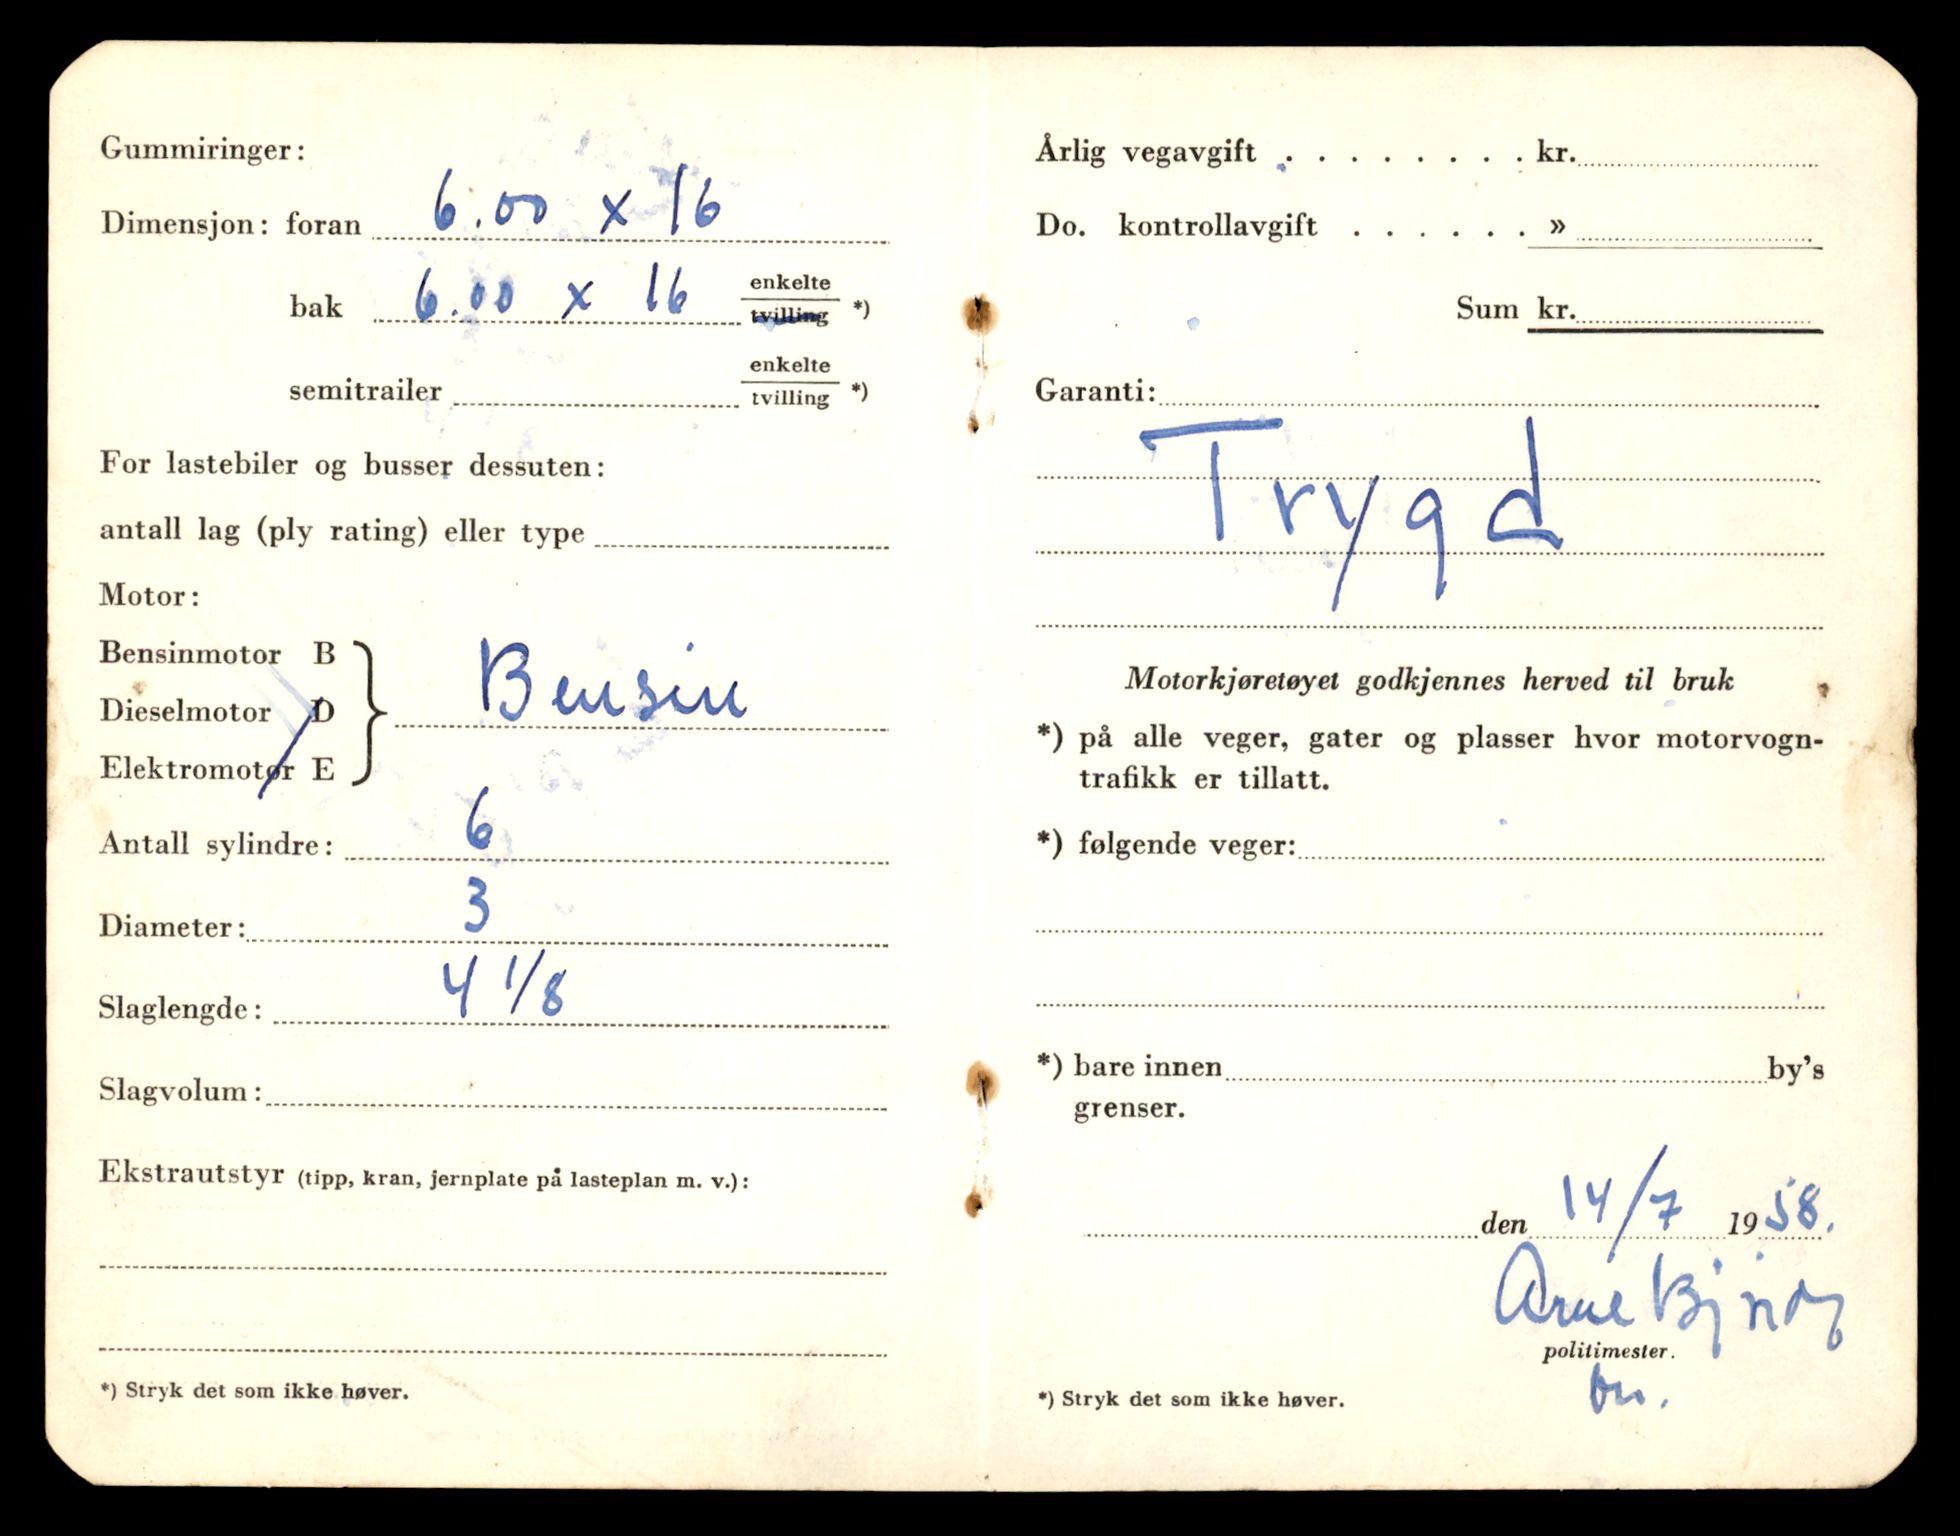 Gummiringer:
Dimensjon: foran 6.00 x 16
bak 6.00 x 16 enkelte
tvilling *)
semitrailer enkelte
tvilling *)
For lastebiler og busser dessuten:
antall lag (ply rating) eller type
Motor:
Bensinmotor B
Dieselmotor D Bensin
Elektromotor E
Antall sylindre: 6
Diameter: 3
Slaglengde: 4 1/8
Slagvolum:
Ekstrautstyr (tipp, kran, jernplate på lasteplan m. v.):
*) Stryk det som ikke høver.
Årlig vegavgift . . . . . . . . kr.
Do. kontrollavgift . . . . . . »
Sum kr.
Garanti:
Trygd
Motorkjøretøyet godkjennes herved til bruk
*) på alle veger, gater og plasser hvor motorvogn-
trafikk er tillatt.
*) følgende veger:
*) bare innen by's
grenser.
den 14/7 1958.
Arne
politimester.
*) Stryk det som ikke høver.